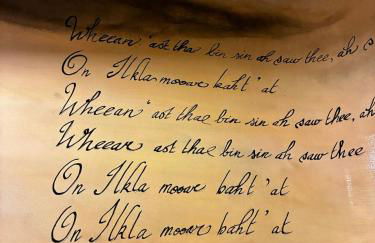 Wheean 'ast tha bin sin ah saw thee, ah s
On Ilkla mooar baht 'at
Wheean 'ast thae bin sin ah saw thee, ah
Wheear ast thae bin sin ah saw thee
On Ilkla mooar baht 'at
On Ilkla mooar baht 'at